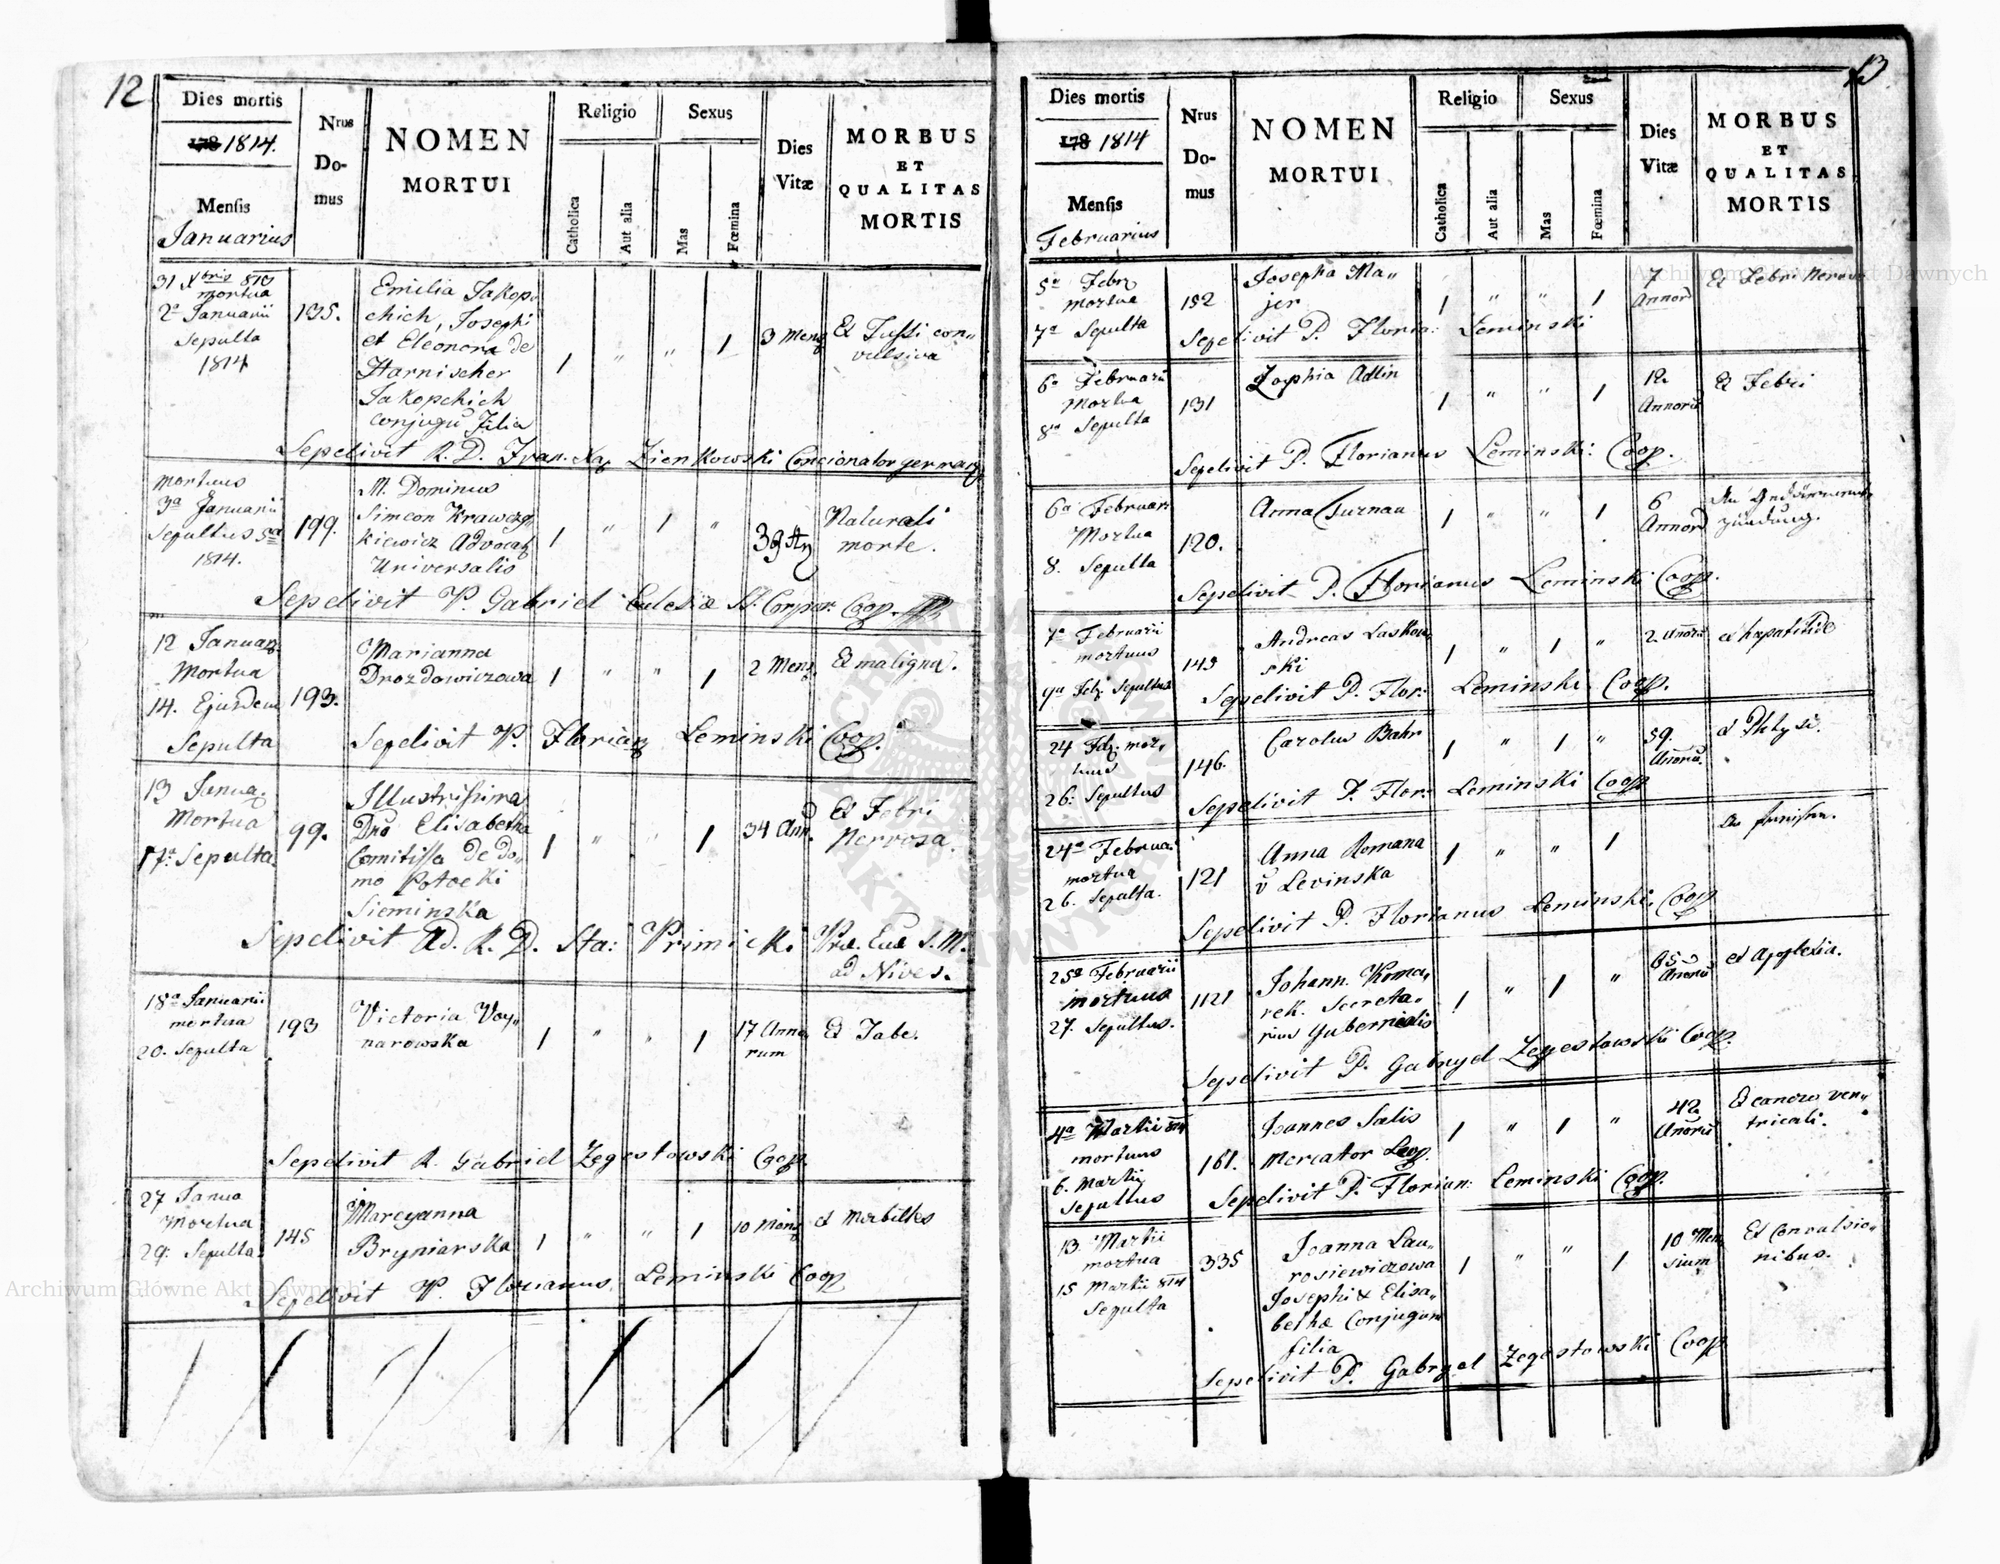 12
Dies mortis
178 1814.
Mensis
Januarius
Nrus
Do-
mus
NOMEN
MORTUI
Religio
Catholica
Aut alia
Sexus
Mas
Fœmina
Dies
Vitæ
MORBUS
ET
QUALITAS
MORTIS
31 Xbris 813
mortua
2ª Januarii
Sepulta
1814
135.
Emilia Jakop-
chich, Josephi
et Eleonora de
Harnischer
Jakopchich
conjugū Filia
1 " " 1
3 Mens
Ex Tussi con„
vulsiva
Sepelivit R. D. Fran. Xav Zienkowski Concionator german
mortuus
3ª Januarii
Sepultus 5ta
1814.
199.
M. Dominus
Simeon Krawczy
kiewicz Advocat
Universalis
1 " 1 "
39
Naturali
morte.
Sepelivit P. Gabriel Eclesiæ St. Corpor: Coop.
12 Januar
Mortua
14. Ejusdem
Sepulta
193.
Marianna
Drozdowiczowa
1 " " 1
2 Mens
Ex maligna.
Sepelivit P. Florian Leminski Coop.
13 Janua.
Mortua
17ª Sepulta
99.
Illustrissima
Dnā Elisabetha
Comitissa de do„
mo Potocki
Sieminska
1 " " 1
34 Ann.
Ex Febri
Nervosa.
Sepelivit Ad. R. D. Sta: Primicki Præ. Eccl S. M.
ad Nives.
18ª Januarii
mortua
20. Sepulta
193
Victoria Voy„
narowska
1 " " 1
17 Anno
rum
Ex Tabe.
Sepelivit R. Gabriel Zegestowski Coop.
27 Janua
Mortua
29. Sepulta
145
Marcyanna
Bryniarska
1 " " 1
10 Mens
ex Morbilles
Sepelivit P. Florianus Leminski Coop
13
Dies mortis
178 1814
Mensis
Februarius
Nrus
Do-
mus
NOMEN
MORTUI
Religio
Catholica
Aut alia
Sexus
Mas
Fœmina
Dies
Vitæ
MORBUS
ET
QUALITAS
MORTIS
5ª Febr
mortua
7ª Sepulta
152
Josepha Ma„
jer
1 " " 1
7
Annor
Ex Febri Nervosa
Sepelivit P. Floria: Leminski
6ª Februarii
Mortua
8ª Sepulta
131
Zophia Adlin
1 " " 1
12.
Annorū
Ex Febri
Sepelivit P. Florianus Leminski: Coop.
6ª Februar
Mortua
8. Sepulta
120.
Anna Turnau
1 " " 1
6
Annor
zündung.
Sepelivit P. Florianus Leminski Coop.
7ª Februarii
mortuus
9ª Feb. Sepultus
145
Andreas Laskow„
ski
1 " 1 "
2. Anorū
ex hepatitide
Sepelivit P. Flor: Leminski Coop.
24 Feb. mor„
tuus
26. Sepultus
146.
Carolus Bahr
1 " 1 "
59.
Anorū.
ex Phtysi.
Sepelivit P. Flor: Leminski Coop
24ª Februa:
mortua
26. Sepulta.
121
Anna Romana
v Levinska
1 " " 1
Sepelivit P. Florianus Leminski. Coop
25ª Februarii
mortuus
27. Sepultus.
1121
Johann Koma„
rek. Secreta„
rius Gubernialis
1 " 1 "
65
Anorū
ex Apoplexia.
Sepelivit P. Gabryel Zegestowski Coop.
4ª Martii 814
mortuus
6. Martii
Sepultus
161.
Joannes Salis
Mercator Leop.
1 " 1 "
42
Anorū
Ex cancro ven„
triculi.
Sepelivit P. Florian: Leminski Coop.
13. Martii
mortua
15 Martii 814
Sepulta
335
Joanna Lau„
rosiewiczowa
Josephi & Elisa„
bethæ Conjugum
filia
1 " " 1
10 Men
sium
Ex Convulsio„
nibus.
Sepelivit P. Gabryel Zegestowski Coop
Archiwum Główne Akt Dawnych
Archiwum Główne Akt Dawnych